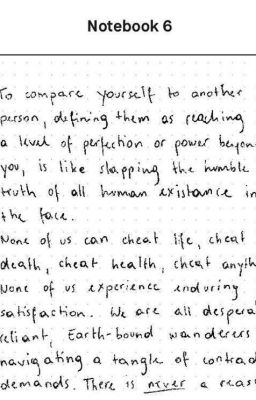 Notebook 6
To compare yourself to another
person, defining them as reaching
a level of perfection or power beyon
you, is like slapping the humble
truth of all human existance in
the face.
None of us can cheat life, cheat
death, cheat health, cheat anyth
None of us experience enduring
satisfaction. We are all despera
reliant, Earth-bound wanderers
navigating a tangle of contrad
demands. There is never a reas